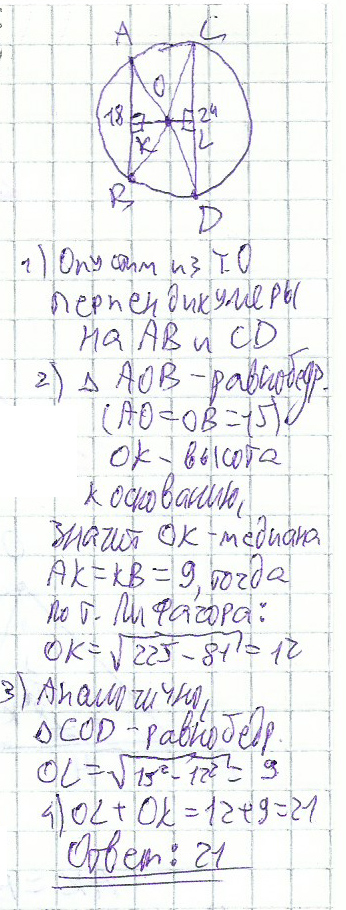 A C
O
18 24
K L
B D
1) Опустим из т.O
перпендикуляры
на AB и CD
2) △ AOB - равнобедр.
(AO=OB=15)
OK - высота
к основанию,
значит OK - медиана
AK=KB=9, тогда
по т. Пифагора:
OK=√225-81=12
3) Аналогично,
△COD - равнобедр.
OL=√15²-12²=9
4) OL+OK=12+9=21
Ответ: 21